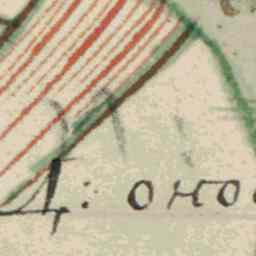 Д: оно